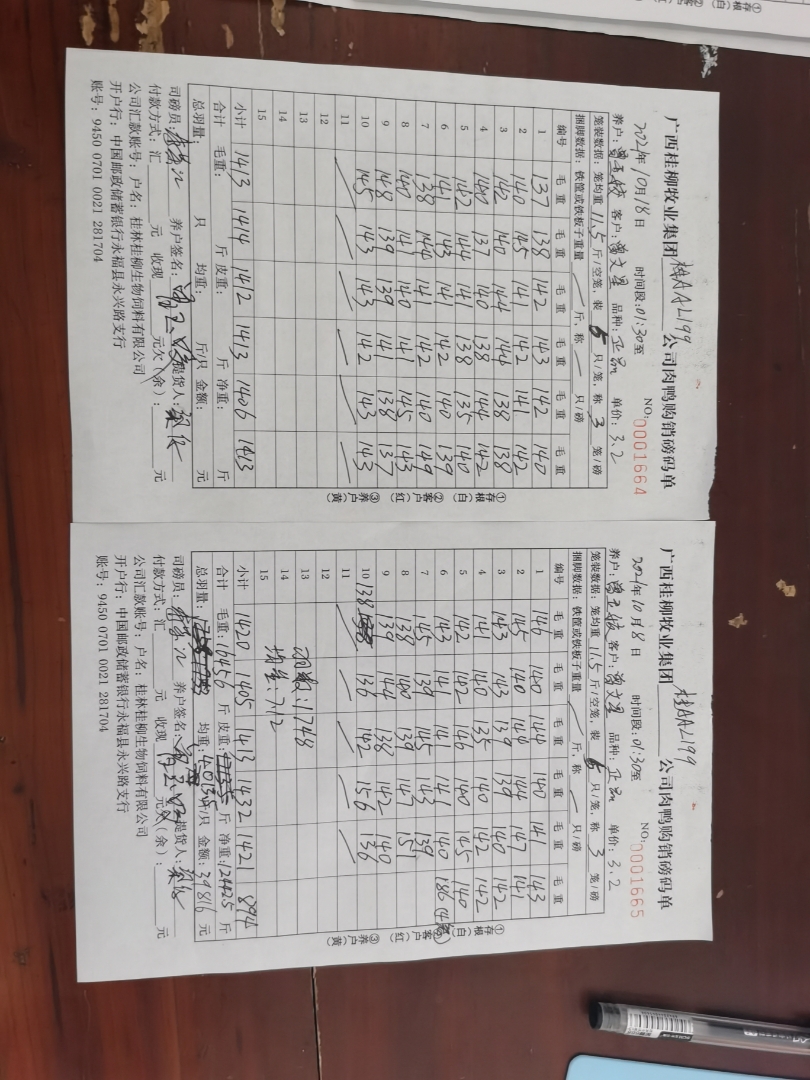 广西桂柳牧业集团 桂AA2199 公司肉鸭购销磅码单
2021年10月18日 时间段:01:30至 NO:0001664
养户: 客户: 品种:正品 单价:3.2
笼装数据:笼均重 11.5 斤/空笼,装 6 只/笼,称 3 笼/磅
捆脚数据:铁筐或铁板子重量 斤,称 只/磅
编号 毛重 毛重 毛重 毛重 毛重 毛重
1 137 138 142 143 142 140
2 140 145 141 142 141 142
3 142 140 144 144 138 138
4 140 137 140 138 144 142
5 142 144 141 138 135 140
6 141 143 141 142 140 139
7 138 144 141 142 140 149
8 140 141 140 141 145 143
9 148 139 139 141 138 137
10 145 143 143 142 143 143
11
12
13
14
15
小计 1413 1414 1412 1413 1406 1413
合计 毛重: 斤 皮重: 斤 净重: 斤
总羽量: 只 均重: 斤/只 金额: 元
司磅员: 养户签名: 提货人:
付款方式:汇 元 收现 元欠(余): 元
公司汇款账号:户名:桂林桂柳生物饲料有限公司
开户行:中国邮政储蓄银行永福县永兴路支行
账号:9450 0701 0021 281704
①存根(白) ②客户(红) ③养户(黄)
广西桂柳牧业集团 桂AA2199 公司肉鸭购销磅码单
2021年10月8日 时间段:01:30至 NO:0001665
养户: 客户: 品种:正品 单价:3.2
笼装数据:笼均重 11.5 斤/空笼,装 6 只/笼,称 3 笼/磅
捆脚数据:铁筐或铁板子重量 斤,称 只/磅
编号 毛重 毛重 毛重 毛重 毛重 毛重
1 146 140 144 140 141 143
2 145 140 144 144 147 141
3 143 143 139 139 140 142
4 141 140 135 140 142 142
5 142 142 146 140 145 140
6 143 141 141 141 140 186
7 145 139 145 143 139
8 138 140 139 147 151
9 139 144 138 142 140
10 138 136 142 156 136
11
12
13 羽数:1748
14 均重:7.12
15
小计 1420 1405 1413 1432 1421 894
合计 毛重:16456 斤 皮重: 斤 净重:12442.5 斤
总羽量: 只 均重: 斤/只 金额:39816 元
司磅员: 养户签名: 提货人:
付款方式:汇 元 收现 元欠(余): 元
公司汇款账号:户名:桂林桂柳生物饲料有限公司
开户行:中国邮政储蓄银行永福县永兴路支行
账号:9450 0701 0021 281704
①存根(白) ②客户(红) ③养户(黄)